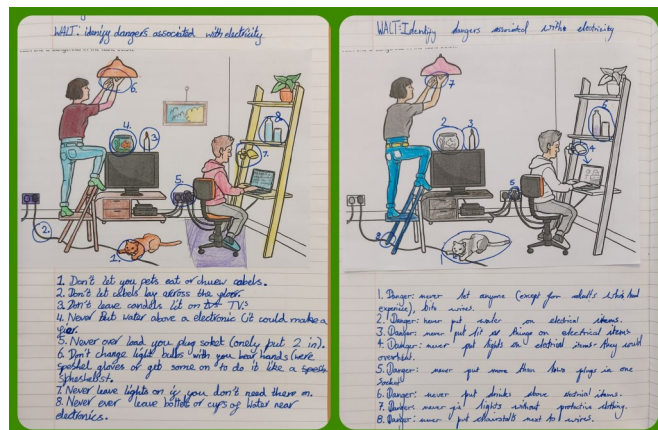 WALT: idenify dangers associated with electricity
6.
4.
3
8
7.
5.
2.
1.
1. Don't let you pets eat or chuew cabels.
2. Don't let cabels lay across the
3. Don't leave candels lit on TV's
4. Never Put water above a electronic (it could make a
5. Never over load you plug soket (onely put 2 in).
6. Don't change light bulbs with you bear hands (were
speshel gloves or get some on to do it like a
7. Never leave lights on if you don't need them on.
8. Never ever leave bottels or cups of water near
electronics.
WALT: Identify dangers associated with electricity
7
2
3
6
4
5
8
1. Danger: never let anyone (except for adults
wires.
2. Danger: never put water on electrical items.
3. Danger: never put lit things on electrical items
4. Danger: never put lights on electrical items they would
overheat.
5. Danger: never put more than two plugs in one
socket
6. Danger: never put drinks above electrical items.
7. Danger: never fix lights without protective clothing.
8. Danger: never put next to wires.